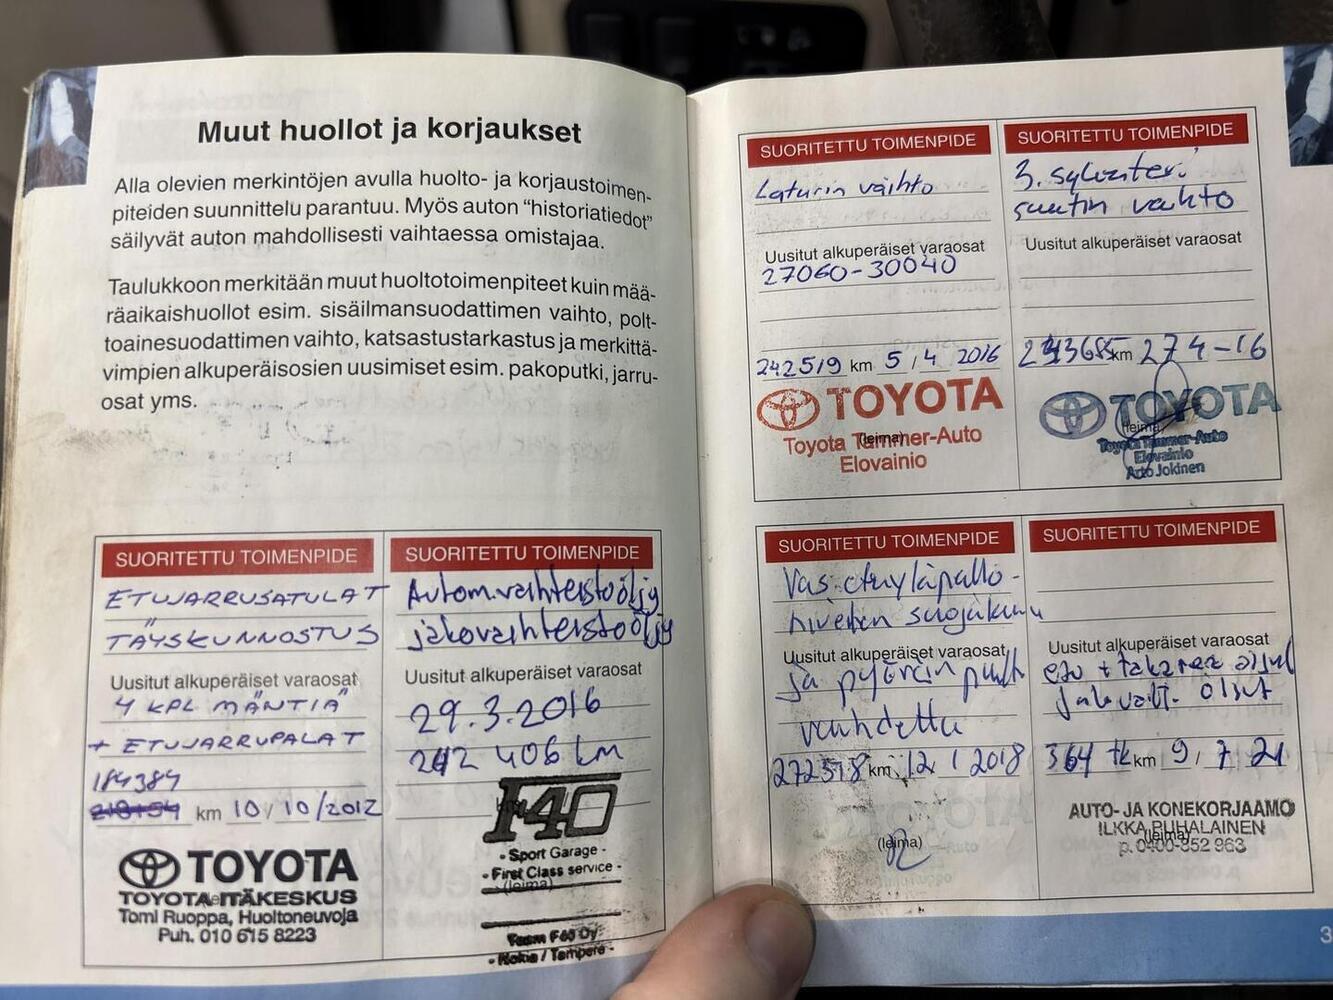 Muut huollot ja korjaukset
Alla olevien merkintöjen avulla huolto- ja korjaustoimen-
piteiden suunnittelu parantuu. Myös auton "historiatiedot"
säilyvät auton mahdollisesti vaihtaessa omistajaa.
Taulukkoon merkitään muut huoltotoimenpiteet kuin mää-
räaikaishuollot esim. sisäilmansuodattimen vaihto, polt-
toainesuodattimen vaihto, katsastustarkastus ja merkittä-
vimpien alkuperäisosien uusimiset esim. pakoputki, jarru-
osat yms.
SUORITETTU TOIMENPIDE
ETUJARRUSATULAT
TÄYSKUNNOSTUS
Uusitut alkuperäiset varaosat
4 KPL MÄNTIÄ
+ ETUJARRUPALAT
184384
km 10/10/2012
TOYOTA
TOYOTA ITÄKESKUS
Tomi Ruoppa, Huoltoneuvoja
Puh. 010 615 8223
SUORITETTU TOIMENPIDE
Autom.vaihteistoöljy
jakovaihteistoöljy
Uusitut alkuperäiset varaosat
29.3.2016
242 406 km
F40
- Sport Garage -
- First Class service -
(leima)
Team F40 Oy
- Nokia / Tampere -
SUORITETTU TOIMENPIDE
Laturin vaihto
Uusitut alkuperäiset varaosat
27060-30040
242519 km 5/4 2016
TOYOTA
(leima)
Toyota Tammer-Auto
Elovainio
SUORITETTU TOIMENPIDE
3. sylinter.
suutin vaihto
Uusitut alkuperäiset varaosat
km 27 4-16
TOYOTA
(leima)
Toyota Tammer-Auto
Elovainio
Arto Jokinen
SUORITETTU TOIMENPIDE
Vas. etuyläpallo-
nivelen suojakumu
Uusitut alkuperäiset varaosat
ja pyörän
vaihdettu
272518 km 12. 1 2018
(leima)
SUORITETTU TOIMENPIDE
Uusitut alkuperäiset varaosat
etu + taka öljyt
öljyt
364 tk km 9, 7 21
AUTO- JA KONEKORJAAMO
ILKKA PUHALAINEN
(leima)
p. 0400-852 963
3